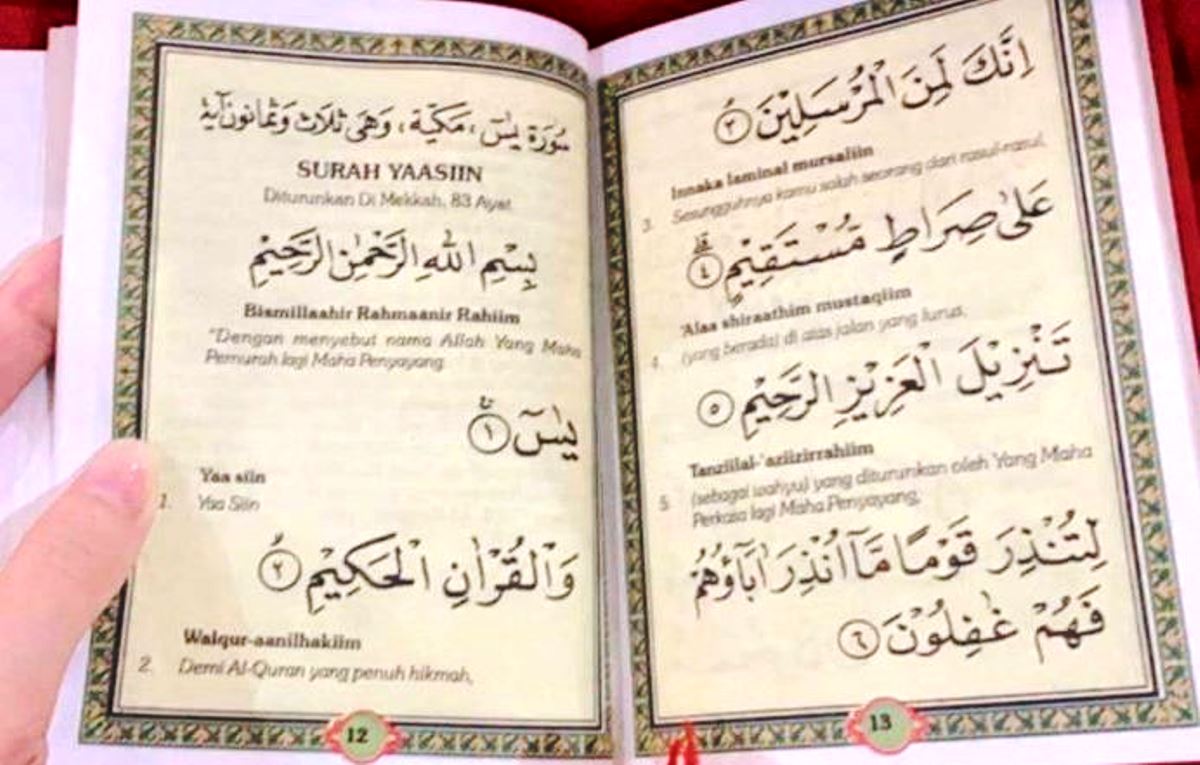 سُوْرَةُ يٰسٓ، مَكِّيَّة، وَهِيَ ثَلَاثٌ وَثَمَانُوْنَ آيَةً
SURAH YAASIIN
Diturunkan Di Mekkah, 83 Ayat
بِسْمِ اللّٰهِ الرَّحْمٰنِ الرَّحِيْمِ
Bismillaahir Rahmaanir Rahiim
"Dengan menyebut nama Allah Yang Maha
Pemurah lagi Maha Penyayang
يٰسٓ ۚ ١
Yaa siin
1. Yaa Siin
وَالْقُرْاٰنِ الْحَكِيْمِ ۙ ٢
Walqur-aanilhakiim
2. Demi Al-Quran yang penuh hikmah,
12
اِنَّكَ لَمِنَ الْمُرْسَلِيْنَ ۙ ٣
Innaka laminal mursaliin
3. Sesungguhnya kamu salah seorang dari rasul-rasul,
عَلٰى صِرَاطٍ مُّسْتَقِيْمٍ ۗ ٤
'Alaa shiraathim mustaqiim
4. (yang berada) di atas jalan yang lurus,
تَنْزِيْلَ الْعَزِيْزِ الرَّحِيْمِ ٥
Tanziilal-'aziizirrahiim
5. (sebagai wahyu) yang diturunkan oleh Yang Maha
Perkasa lagi Maha Penyayang,
لِتُنْذِرَ قَوْمًا مَّآ اُنْذِرَ اٰبَآؤُهُمْ
فَهُمْ غٰفِلُوْنَ ٦
13